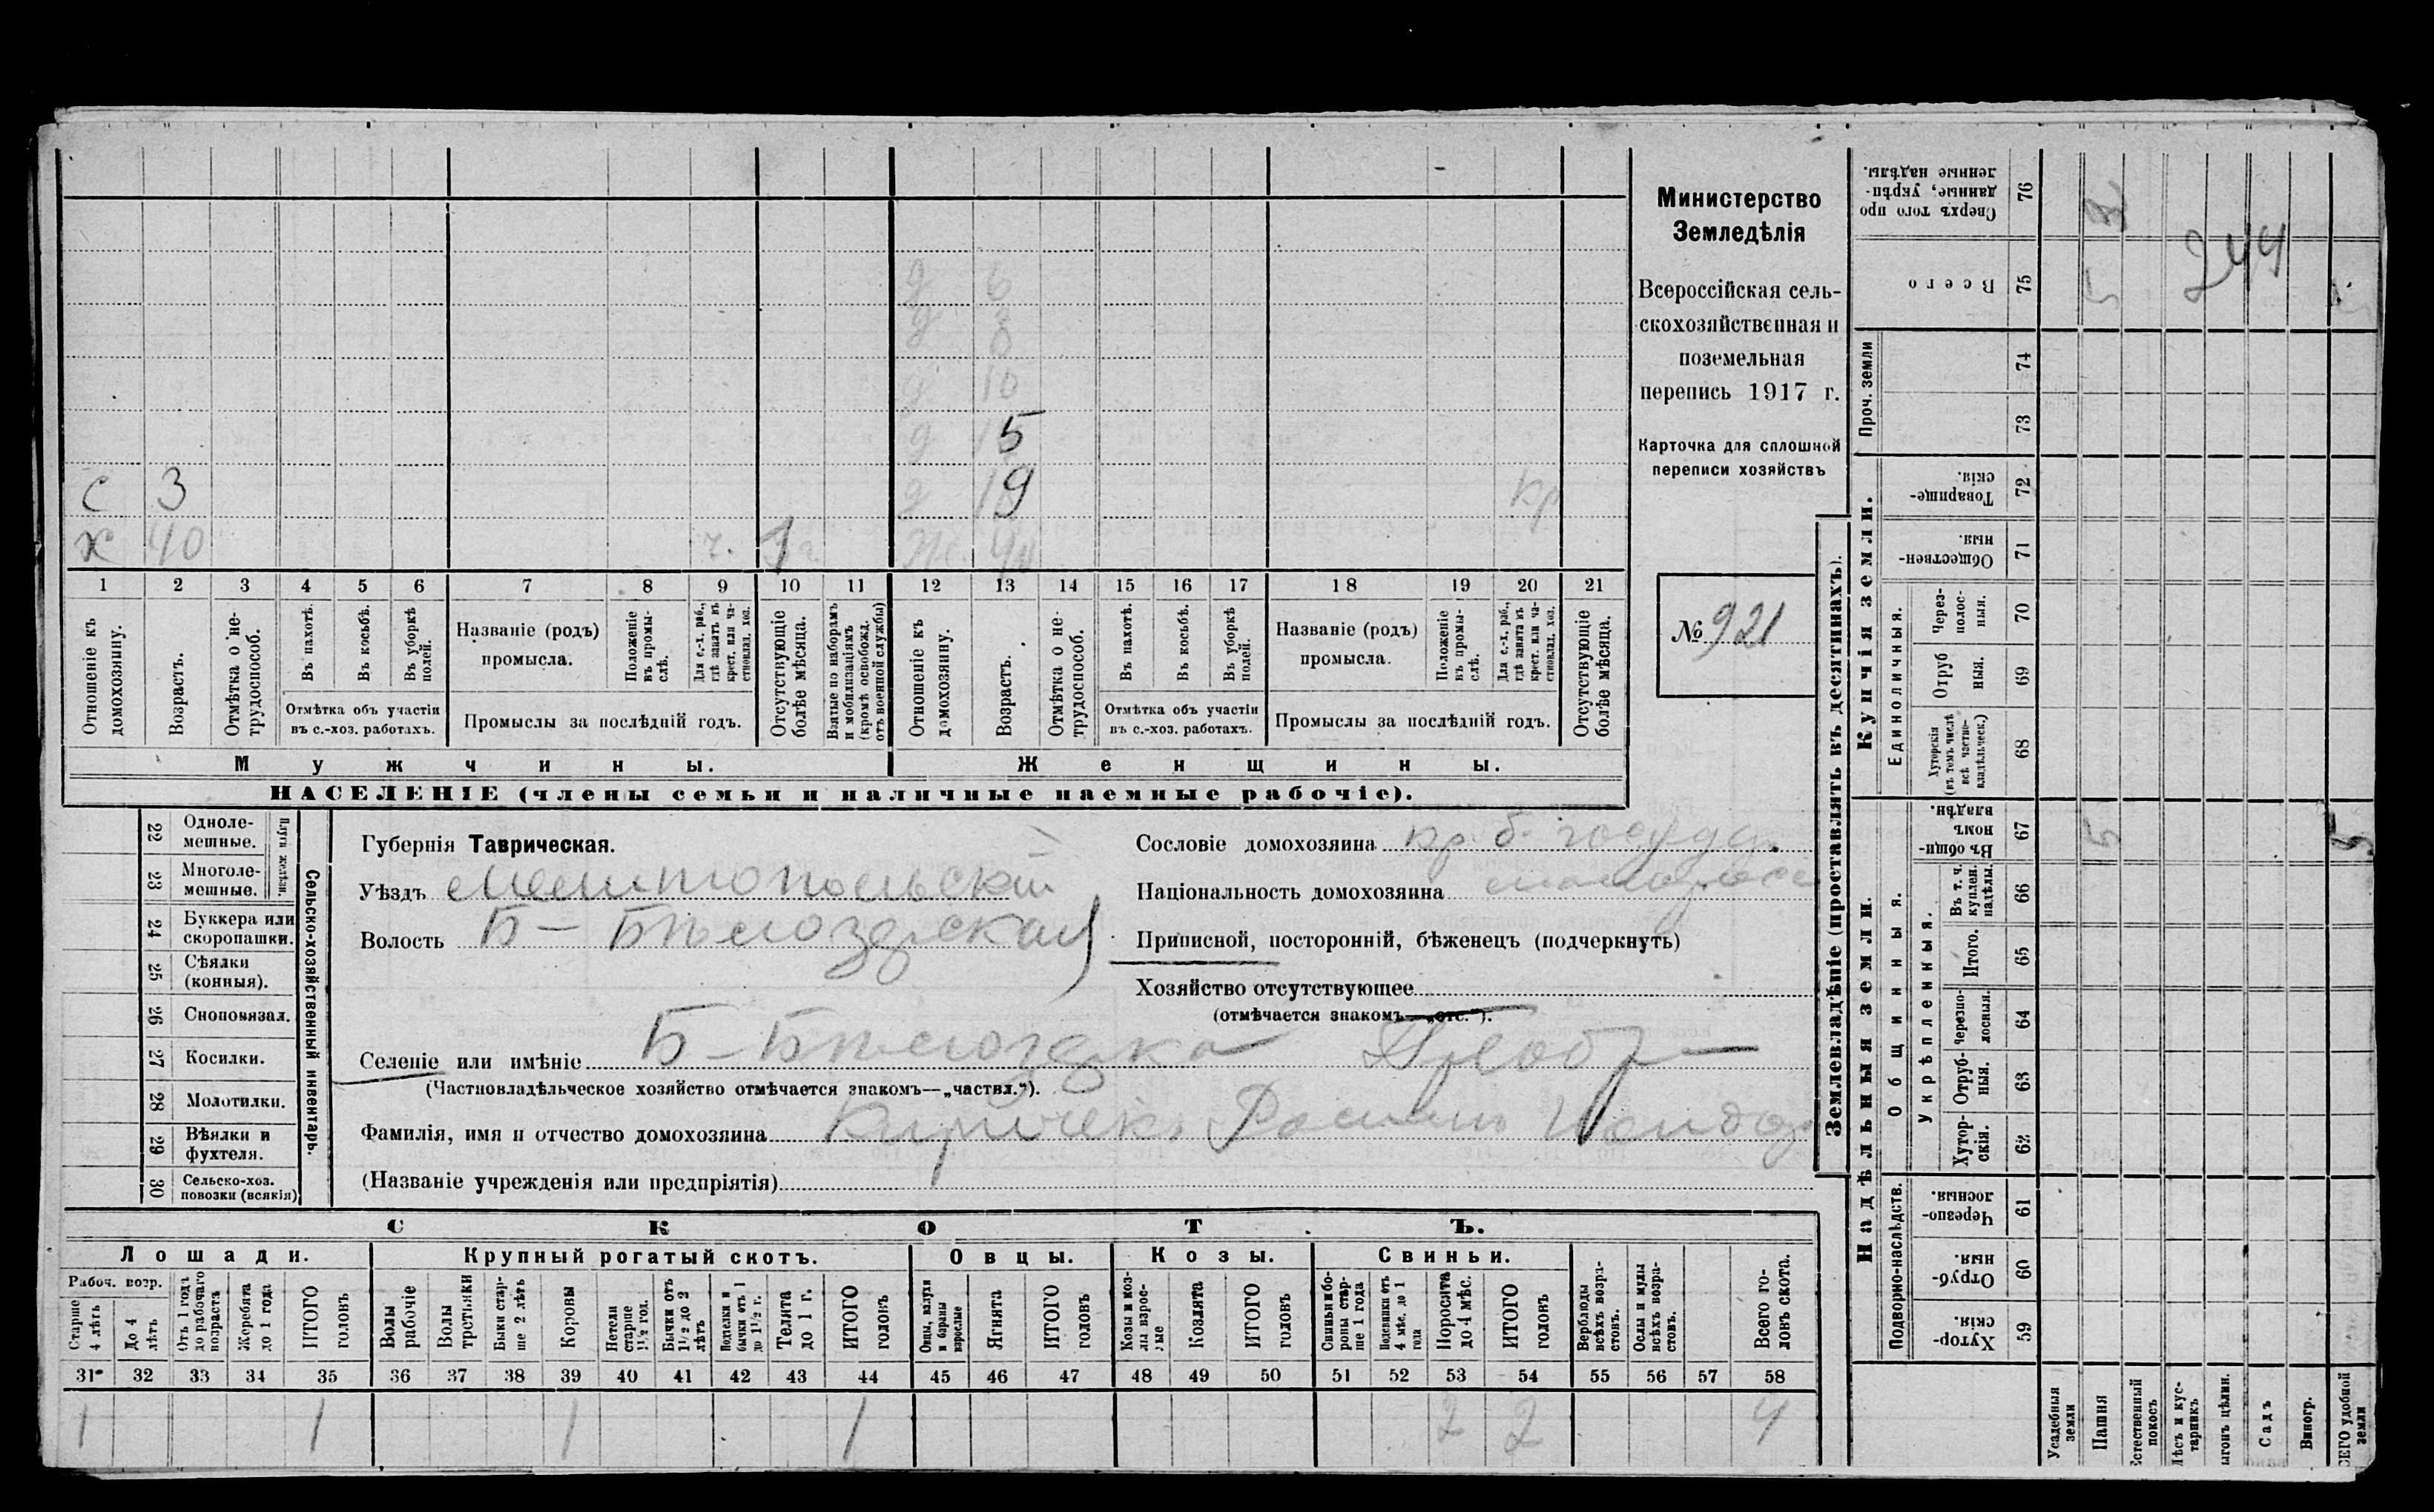 с 3
х 40 г. 1
д 6
д 8
д 10
д 5
д 9 кр
ж. 40
1 2 3 4 5 6 7 8 9 10 11 12 13 14 15 16 17 18 19 20 21
Отношеніе къ домохозяину.
Возрастъ.
Отмѣтка о не-трудоспособ.
Въ пахотѣ.
Въ косьбѣ.
Въ уборкѣ полей.
Отмѣтка объ участіи въ с.-хоз. работахъ.
Названіе (родъ) промысла.
Положеніе въ промы-слѣ.
Для с.-х. раб., гдѣ занятъ въ крест. или ча-стновлад. хоз.
Промыслы за послѣдній годъ.
Отсутствующіе болѣе мѣсяца.
Взятые по наборамъ и мобилизаціямъ (кромѣ освобожд. отъ военной службы)
Отношеніе къ домохозяину.
Возрастъ.
Отмѣтка о не-трудоспособ.
Въ пахотѣ.
Въ косьбѣ.
Въ уборкѣ полей.
Отмѣтка объ участіи въ с.-хоз. работахъ.
Названіе (родъ) промысла.
Положеніе въ промы-слѣ.
Для с.-х. раб., гдѣ занята въ крест. или ча-стновлад. хоз.
Промыслы за послѣдній годъ.
Отсутствующіе болѣе мѣсяца.
Мужчины. Женщины.
НАСЕЛЕНІЕ (члены семьи и наличные наемные рабочіе).
Министерство
Земледѣлія
Всероссійская сель-
скохозяйственная и
поземельная
перепись 1917 г.
Карточка для сплошной
переписи хозяйствъ
№ 921
22 Однолемешные.
23 Многолемешные.
Плуги желѣзн.
24 Буккера или скоропашки.
25 Сѣялки (конныя).
26 Сноповязал.
27 Косилки.
28 Молотилки.
29 Вѣялки и фухтеля.
30 Сельско-хоз. повозки (всякія)
Сельско-хозяйственный инвентарь.
Губернія Таврическая.
Уѣздъ Мелитопольскій
Волость Б-Бѣлозерская
Селеніе или имѣніе Б-Бѣлозерка
(Частновладѣльческое хозяйство отмѣчается знакомъ—„частвл.").
Фамилія, имя и отчество домохозяина Киричекъ
(Названіе учрежденія или предпріятія)
Сословіе домохозяина кр. б. госуд.
Національность домохозяина малоросс
Приписной, посторонній, бѣженецъ (подчеркнуть)
Хозяйство отсутствующее
(отмѣчается знакомъ—„отс.").
СКОТЪ.
Лошади. Крупный рогатый скотъ. Овцы. Козы. Свиньи.
Рабоч. возр.
Старше 4 лѣтъ
До 4 лѣтъ
Отъ 1 годъ до рабочаго возраста
Жеребята до 1 года
ИТОГО головъ
Волы рабочіе
Волы третьяки
Быки стар-ше 2 лѣтъ
Коровы
Нетели старше 1½ год.
Бычки отъ 1½ до 2 лѣтъ
Подтелки и бычки отъ 1 до 1½ г.
Телята до 1 г.
ИТОГО головъ
Овцы, валухи и бараны взрослые
Ягнята
ИТОГО головъ
Козы и коз-лы взрос-лые
Козлята
ИТОГО головъ
Свиньи и бо-ровы стар-ше 1 года
Подсвинки отъ 4 мѣс. до 1 года
Поросята до 4 мѣс.
ИТОГО головъ
Верблюды всѣхъ возра-стовъ.
Ослы и мулы всѣхъ возра-стовъ.
Всего го-ловъ скота.
31 32 33 34 35 36 37 38 39 40 41 42 43 44 45 46 47 48 49 50 51 52 53 54 55 56 57 58
1 1 1 1 2 2 4
Землевладѣніе (проставлять въ десятинахъ).
Надѣльныя земли. Купчія земли. Проч. земли
Подворно-наслѣдств. Общинныя. Укрѣпленныя. Единоличныя.
Хутор-скія. 59
Отруб-ныя. 60
Черезпо-лосныя. 61
Хутор-скія. 62
Отруб-ныя. 63
Черезпо-лосныя. 64
Итого. 65
Въ т. ч. куплен. надѣлы. 66
Въ общин-номъ владѣн. 67
Хуторскія (въ томъ числѣ всѣ частно-владѣльческ.) 68
Отрубныя. 69
Через-полос-ныя. 70
Обществен-ныя. 71
Товарище-скія. 72
73
74
Всего 75
Сверхъ того про-данные, укрѣп-ленные надѣлы. 76
Усадебныя земли
Пашня
Естественный покосъ
Лѣсъ и кус-тарникъ
Выгонъ цѣлин.
Садъ
Виногр.
ВСЕГО удобной земли
5 5
5
244